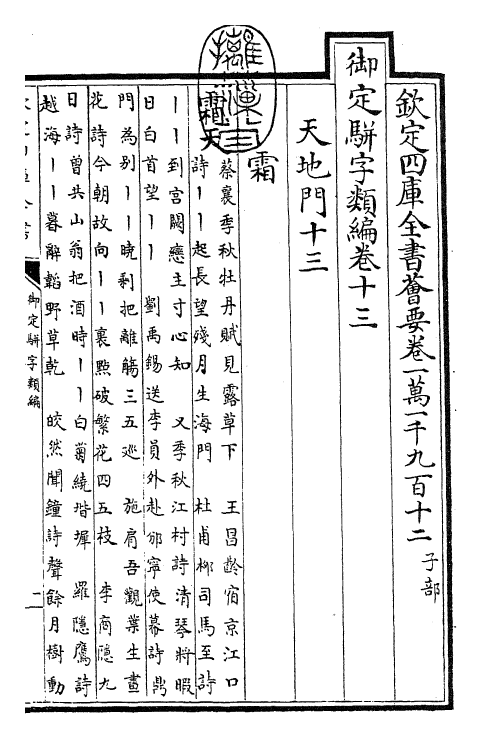 欽定四庫全書薈要卷一萬一千九百十二 子部
御定駢字類編卷十三
天地門十三
霜
霜天 蔡襄季秋牡丹賦見露草下 王昌齡宿京江口
詩丨丨起長望殘月生海門 杜甫柳司馬至詩
丨丨到宮闕應主寸心知 又季秋江村詩清琴將暇
日白首望丨丨 劉禹錫送李員外赴邠寧使幕詩鼎
門為别丨丨曉剩把離觴三五巡 施肩吾觀葉生畫
花詩今朝故向丨丨裏點破繁花四五枝 李商隱九
日詩曾共山翁把酒時丨丨白菊繞堦墀 羅隱鷹詩
越海丨丨暮辭韜野草乾 皎然聞鐘詩聲餘月樹動
御定駢字類編
二